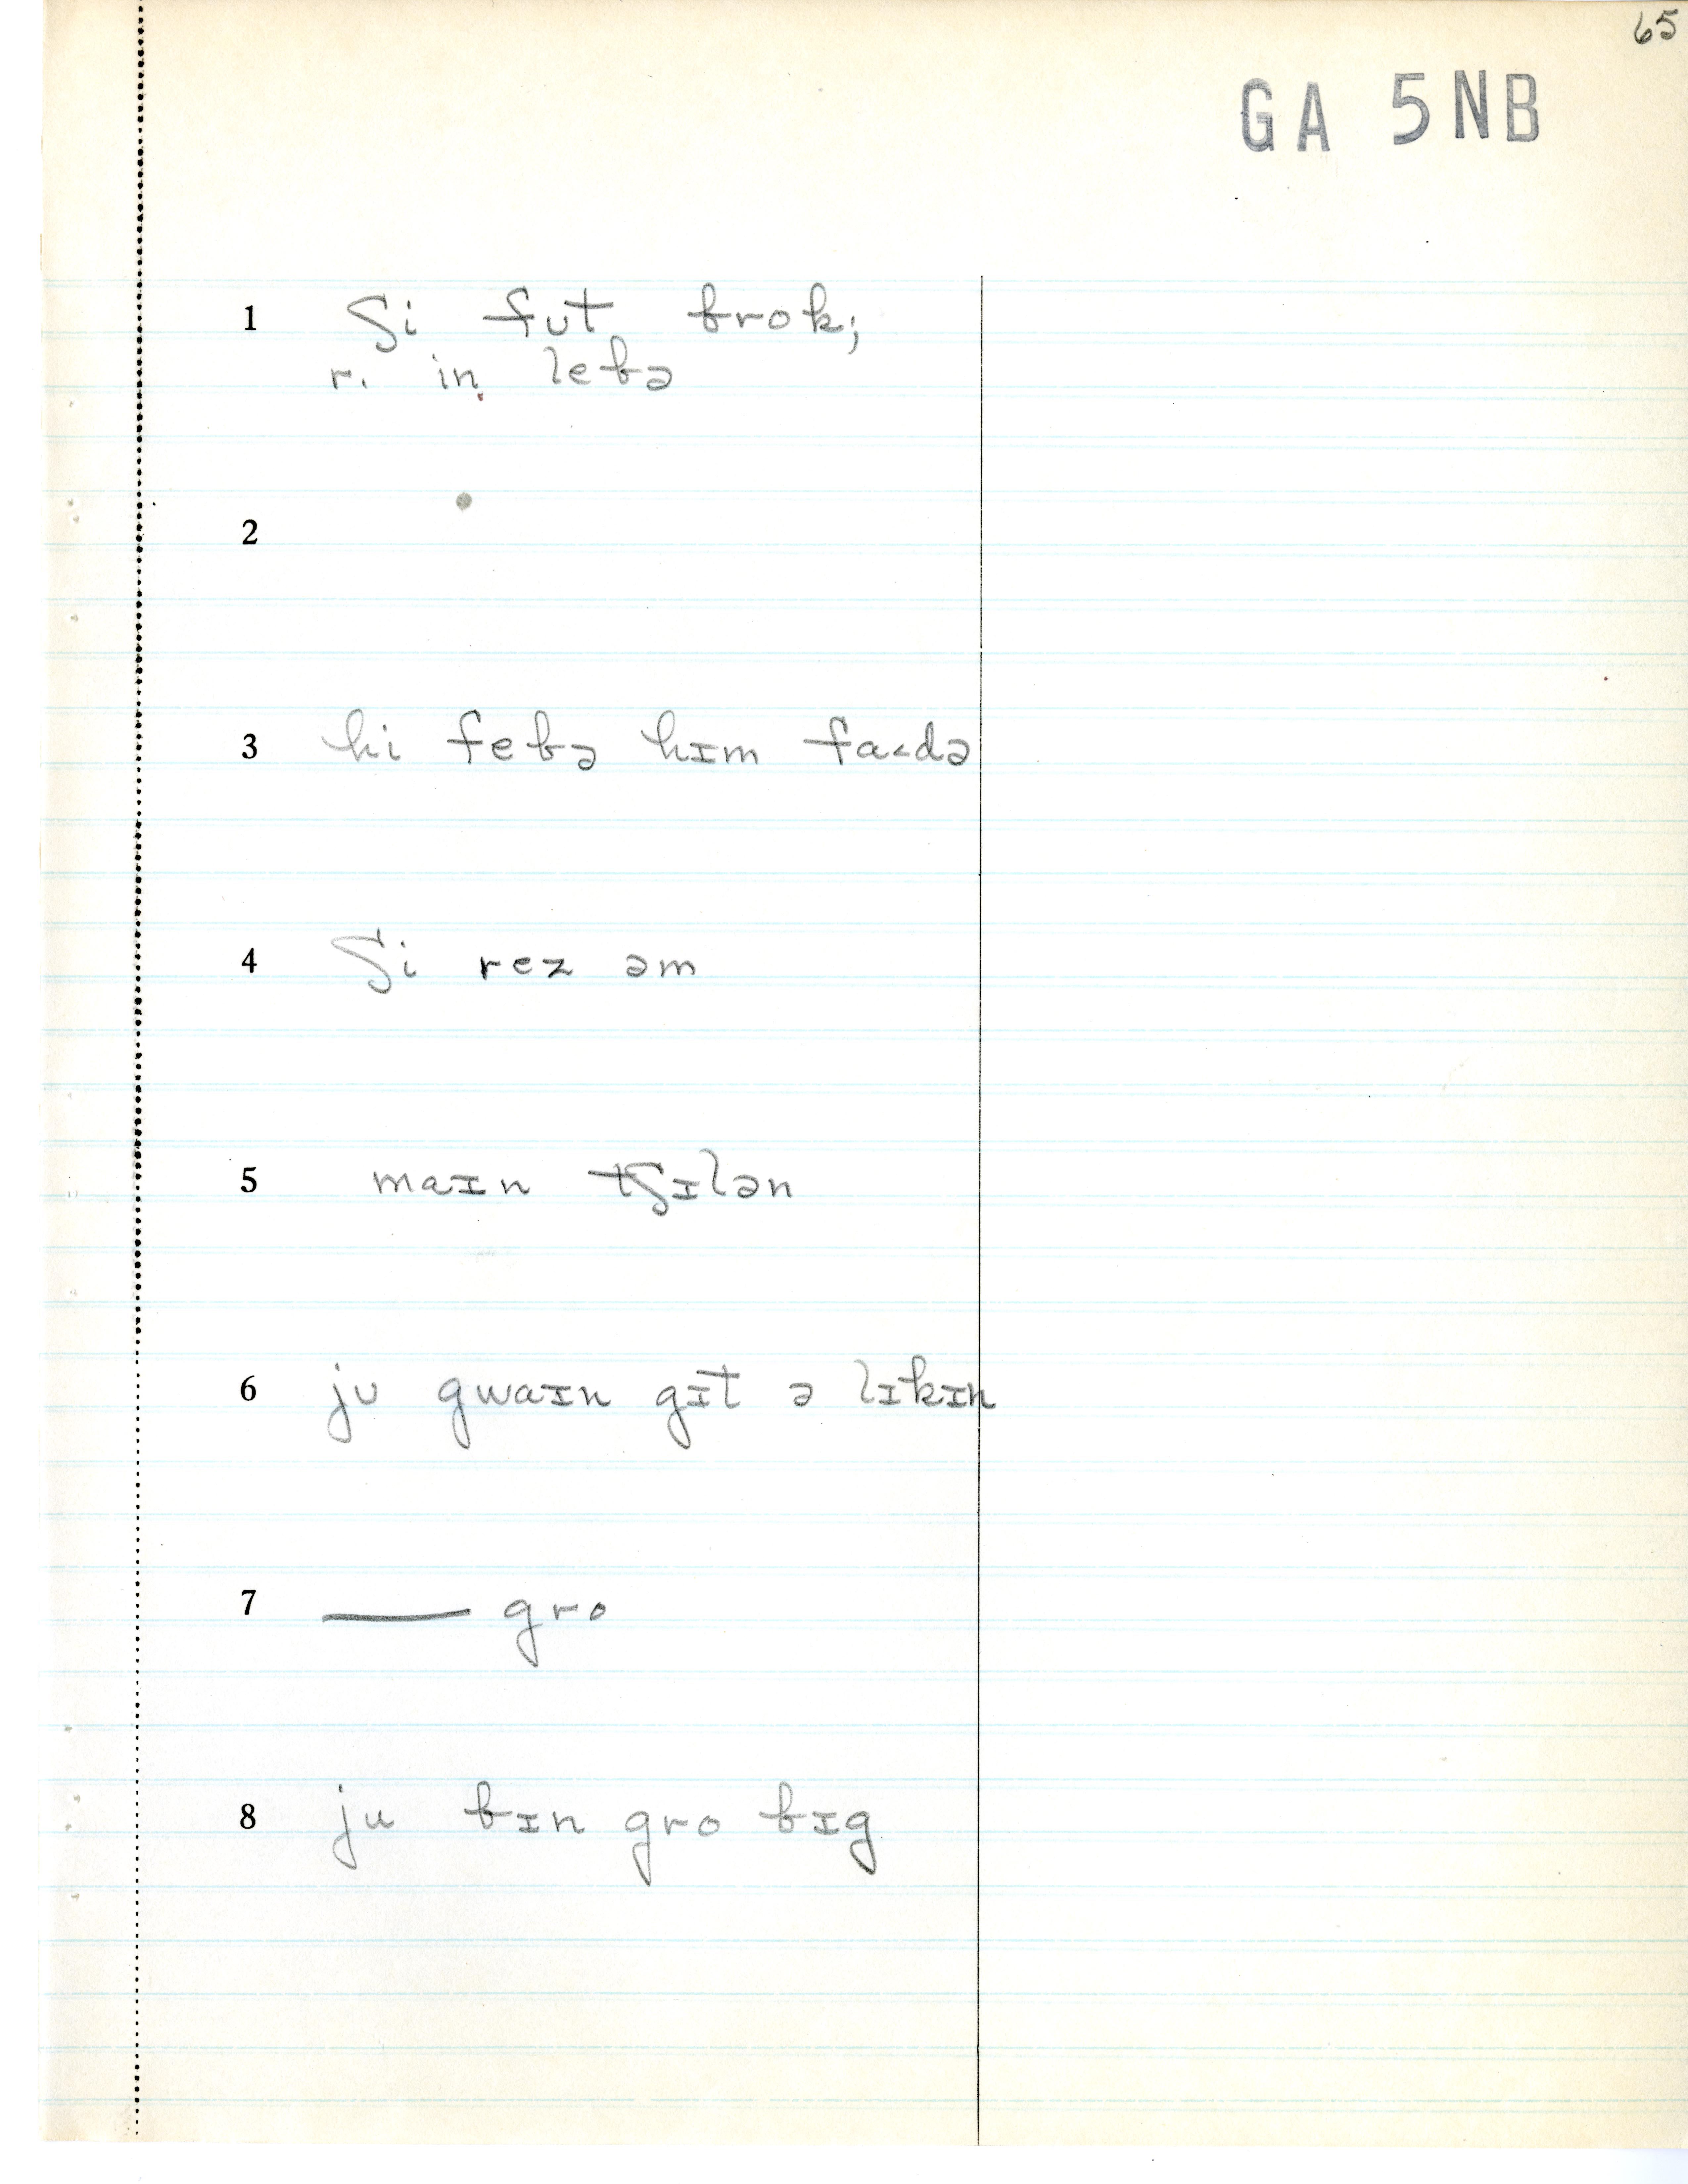 65
GA 5NB
1 ʃi fut brok;
r. in lebə
2
3 hi febə hɪm fa˂də
4 ʃi rez əm
5 maɪn tʃɪlən
6 ju gwaɪn gɪt ə lɪkɪn
7 —— gro
8 ju bɪn gro bɪg